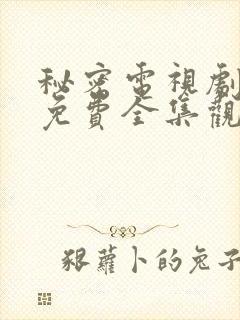 秘密電視劇
免費全集觀
狠蘿卜的兔子